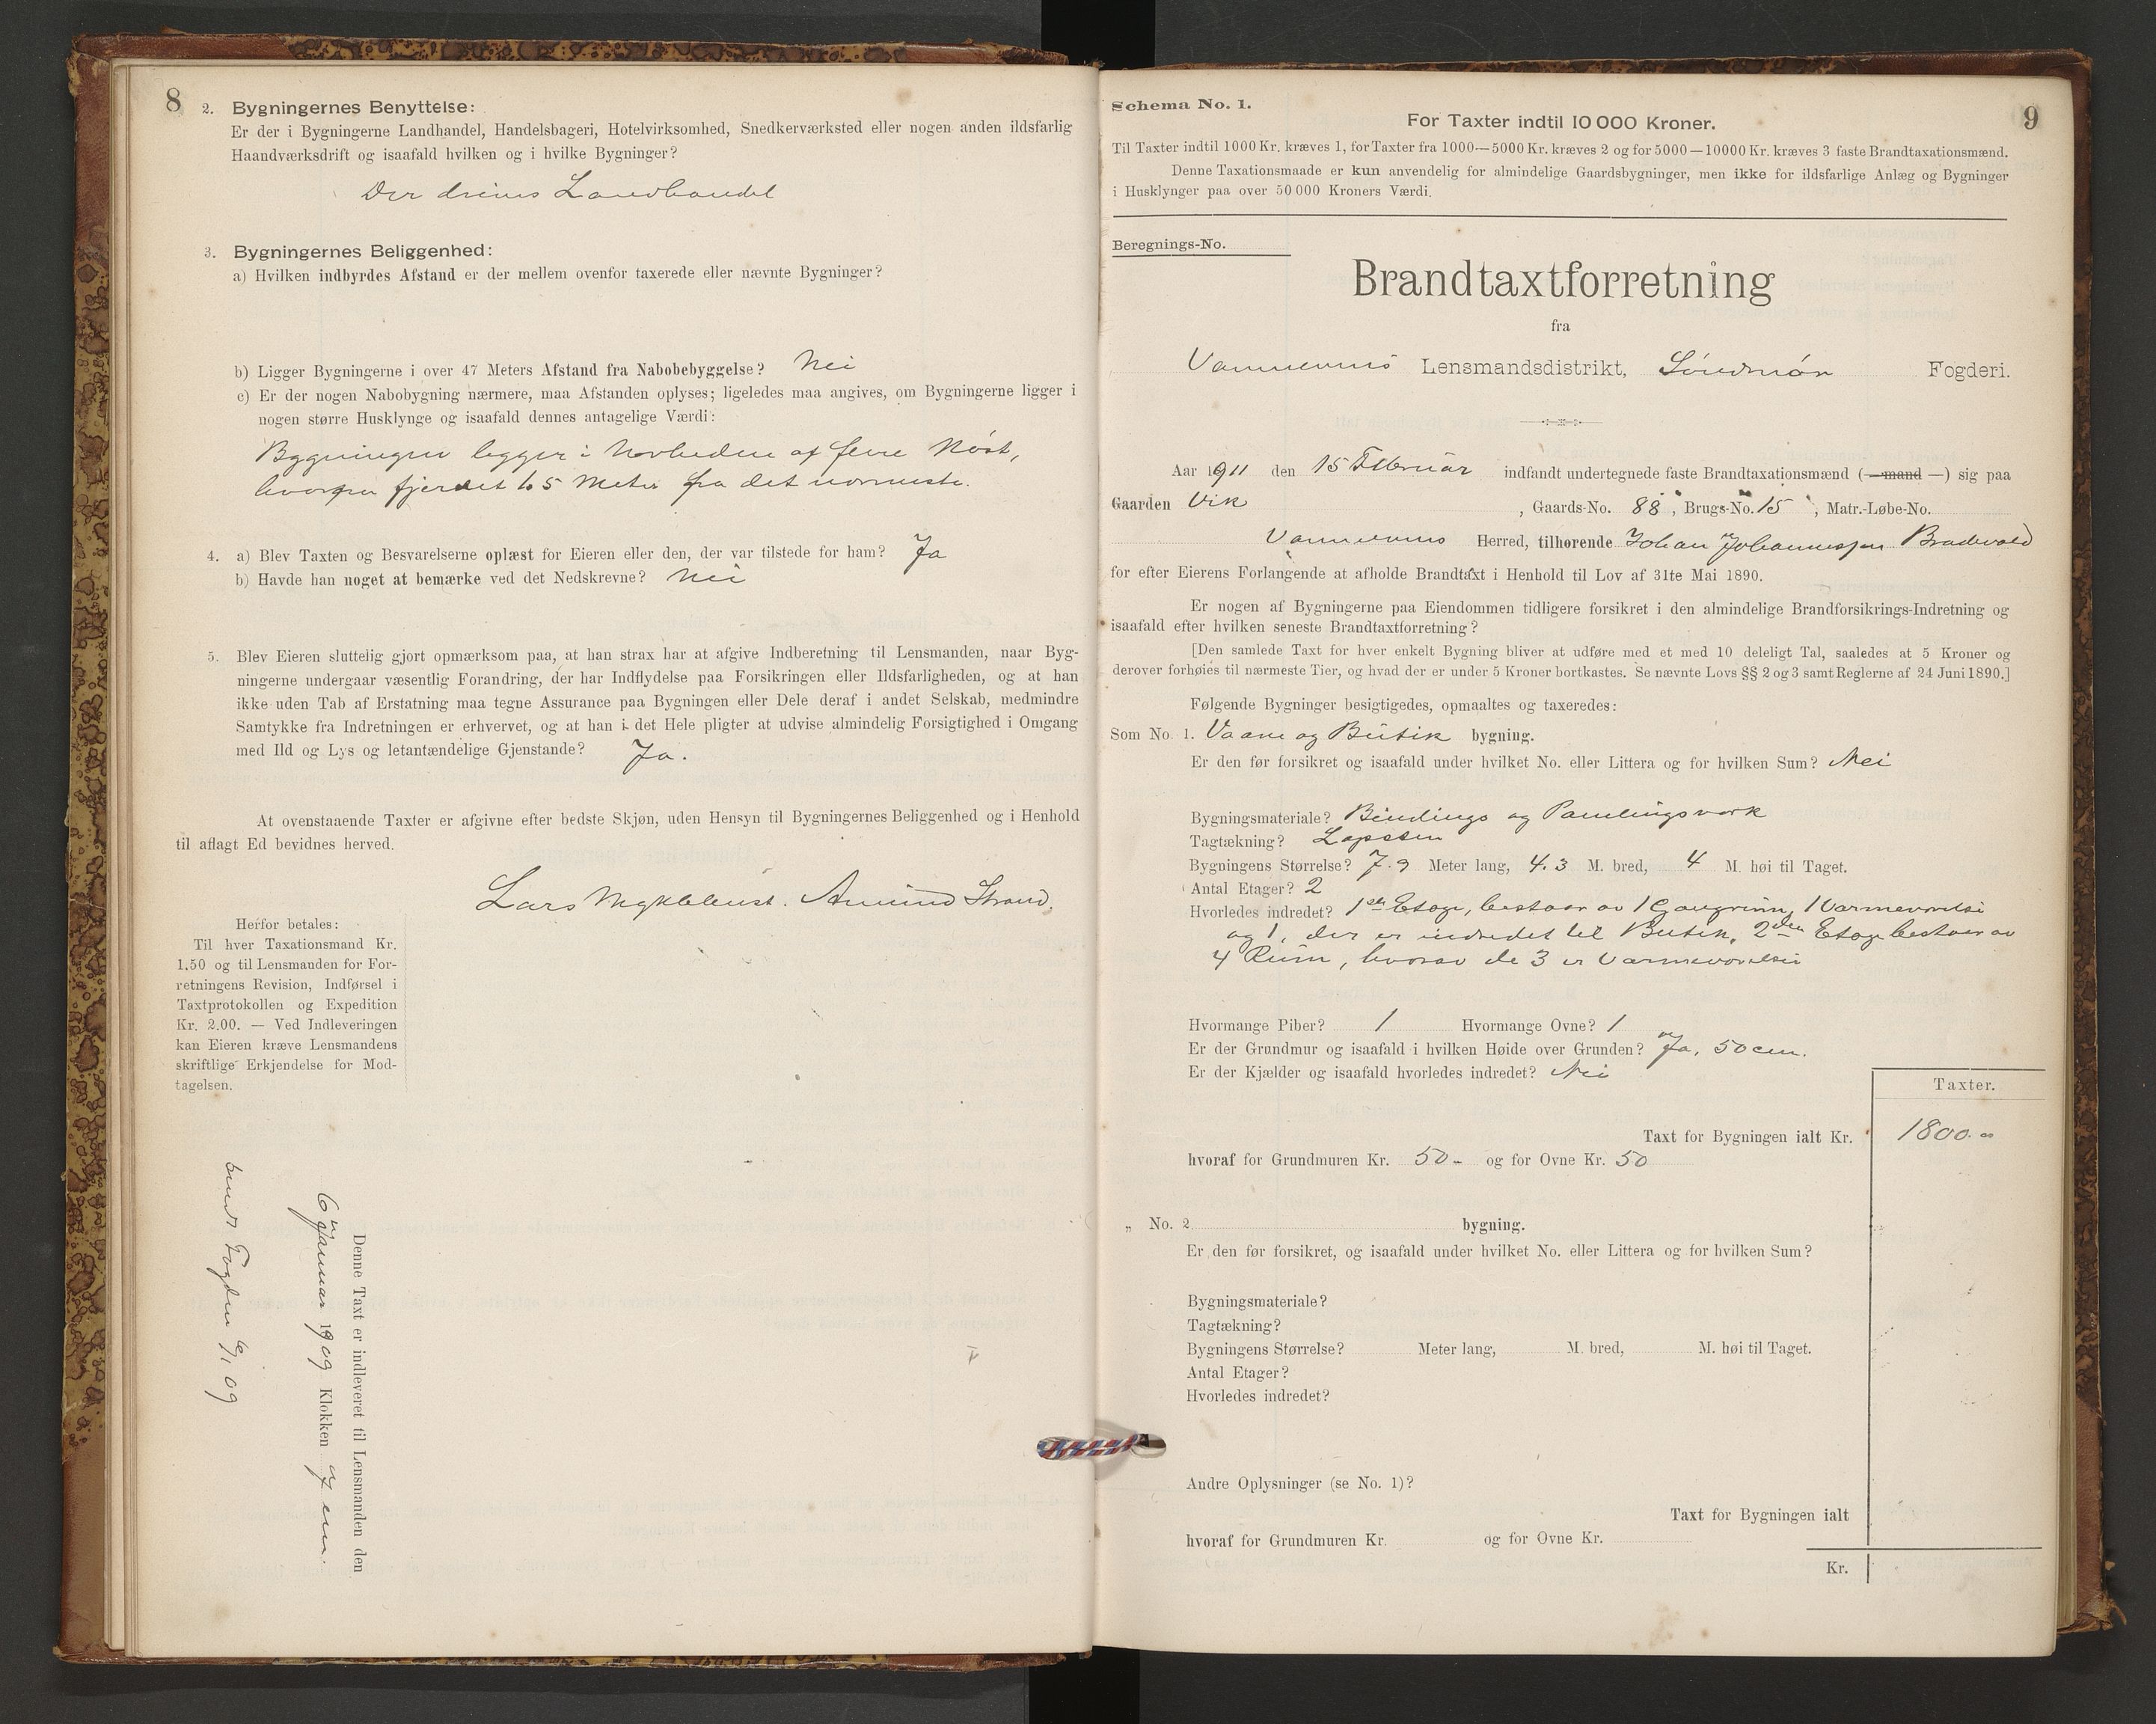 8
2. Bygningernes Benyttelse:
Er der i Bygningerne Landhandel, Handelsbageri, Hotelvirksomhed, Snedkerværksted eller nogen anden ildsfarlig
Haandværksdrift og isaafald hvilken og i hvilke Bygninger?
Der drives Landhandel
3. Bygningernes Beliggenhed:
a) Hvilken indbyrdes Afstand er der mellem ovenfor taxerede eller nævnte Bygninger?
b) Ligger Bygningerne i over 47 Meters Afstand fra Nabobebyggelse? Nei
c) Er der nogen Nabobygning nærmere, maa Afstanden oplyses; ligeledes maa angives, om Bygningerne ligger i
nogen større Husklynge og isaafald dennes antagelige Værdi:
Bygningen ligger i Nærheden af flere Nöst,
hvorfra fjernet 6.5 Meter fra det nærmeste.
4. a) Blev Taxten og Besvarelserne oplæst for Eieren eller den, der var tilstede for ham? Ja
b) Havde han noget at bemærke ved det Nedskrevne? Nei
5. Blev Eieren sluttelig gjort opmærksom paa, at han strax har at afgive Indberetning til Lensmanden, naar Byg-
ningerne undergaar væsentlig Forandring, der har Indflydelse paa Forsikringen eller Ildsfarligheden, og at han
ikke uden Tab af Erstatning maa tegne Assurance paa Bygningen eller Dele deraf i andet Selskab, medmindre
Samtykke fra Indretningen er erhvervet, og at han i det Hele pligter at udvise almindelig Forsigtighed i Omgang
med Ild og Lys og letantændelige Gjenstande? Ja.
At ovenstaaende Taxter er afgivne efter bedste Skjøn, uden Hensyn til Bygningernes Beliggenhed og i Henhold
til aflagt Ed bevidnes herved.
Lars Myklebust. Amund Strand.
Herfor betales:
Til hver Taxationsmand Kr.
1.50 og til Lensmanden for For-
retningens Revision, Indførsel i
Taxtprotokollen og Expedition
Kr. 2.00. — Ved Indleveringen
kan Eieren kræve Lensmandens
skriftlige Erkjendelse for Mod-
tagelsen.
Denne Taxt er indleveret til Lensmanden den
6 Januar 1909 Klokken 7 em.
Sendt Fogden 6/1 09
9
Schema No. 1.
For Taxter indtil 10 000 Kroner.
Til Taxter indtil 1000 Kr. kræves 1, for Taxter fra 1000—5000 Kr. kræves 2 og for 5000—10000 Kr. kræves 3 faste Brandtaxationsmænd.
Denne Taxationsmaade er kun anvendelig for almindelige Gaardsbygninger, men ikke for ildsfarlige Anlæg og Bygninger
i Husklynger paa over 50 000 Kroners Værdi.
Beregnings-No.
Brandtaxtforretning
fra
Vannelvens Lensmandsdistrikt, Söndmör Fogderi.
Aar 1911 den 15 Februar indfandt undertegnede faste Brandtaxationsmænd (—mand—) sig paa
Gaarden Vik , Gaards-No. 88, Brugs-No. 15, Matr.-Løbe-No.
Vannelvens Herred, tilhørende Johan Johannessen Bradevold
for efter Eierens Forlangende at afholde Brandtaxt i Henhold til Lov af 31te Mai 1890.
Er nogen af Bygningerne paa Eiendommen tidligere forsikret i den almindelige Brandforsikrings-Indretning og
isaafald efter hvilken seneste Brandtaxtforretning?
[Den samlede Taxt for hver enkelt Bygning bliver at udføre med et med 10 deleligt Tal, saaledes at 5 Kroner og
derover forhøies til nærmeste Tier, og hvad der er under 5 Kroner bortkastes. Se nævnte Lovs §§ 2 og 3 samt Reglerne af 24 Juni 1890.]
Følgende Bygninger besigtigedes, opmaaltes og taxeredes:
Som No. 1. Vaane og Butik bygning.
Er den før forsikret og isaafald under hvilket No. eller Littera og for hvilken Sum? Nei
Bygningsmateriale? Bindings og Panelingsverk
Tagtækning? Lapsten
Bygningens Størrelse? 7.9 Meter lang, 4.3 M. bred, 4 M. høi til Taget.
Antal Etager? 2
Hvorledes indredet? 1ste Etage, bestaar av 1 Gangrum, 1 Varmeværelse
og 1, der er indredet til Butik, 2den Etage bestaar av
4 Rum, hvorav de 3 er Varmeværelser
Hvormange Piber? 1 Hvormange Ovne? 1
Er der Grundmur og isaafald i hvilken Høide over Grunden? Ja, 50 cm.
Er der Kjælder og isaafald hvorledes indredet? Nei
Taxter.
Taxt for Bygningen ialt Kr. 1800.00
hvoraf for Grundmuren Kr. 50- og for Ovne Kr. 50
„ No. 2 bygning.
Er den før forsikret, og isaafald under hvilket No. eller Littera og for hvilken Sum?
Bygningsmateriale?
Tagtækning?
Bygningens Størrelse? Meter lang, M. bred, M. høi til Taget.
Antal Etager?
Hvorledes indredet?
Andre Oplysninger (se No. 1)?
Taxt for Bygningen ialt
hvoraf for Grundmuren Kr. og for Ovne Kr.
Kr.